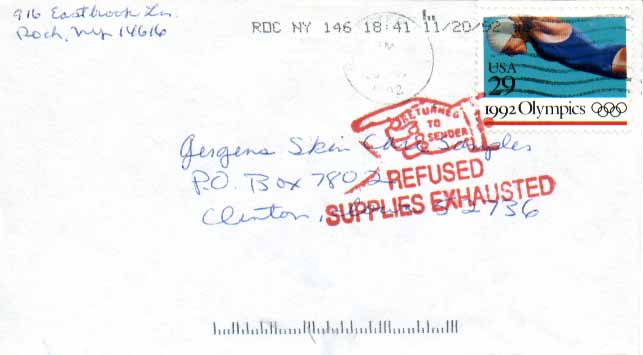 916 Eastbrook Ln.
Roch, NY 14616
ROC NY 146 18:41 11/20/92
PM
USA
29
1992 Olympics
RETURNED
TO
SENDER
REFUSED
SUPPLIES EXHAUSTED
Jergens Skin Care Samples
P.O. Box 7802
Clinton, Iowa 52736